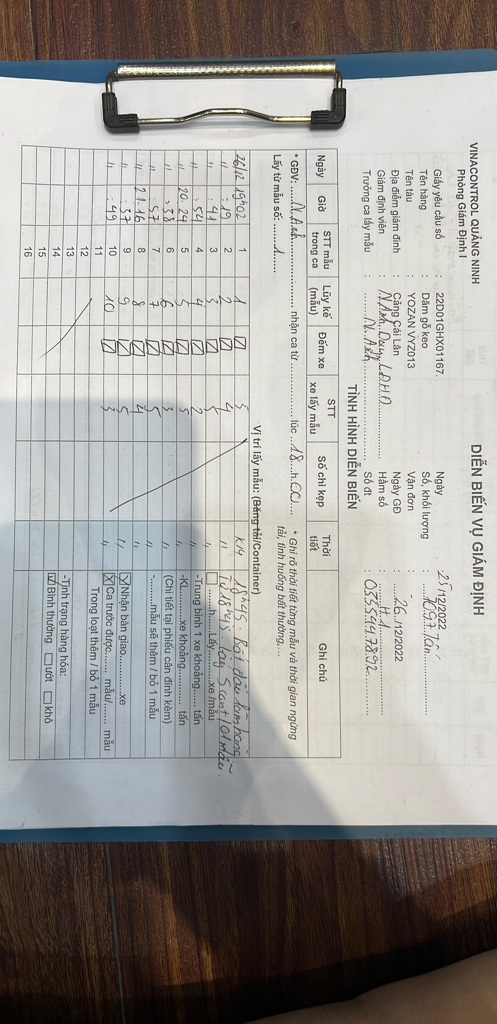 VINACONTROL QUẢNG NINH
Phòng Giám Định I
DIỄN BIẾN VỤ GIÁM ĐỊNH
Giấy yêu cầu số : 22D01GHX01167.
Ngày : 25/12/2022
Tên hàng : Dăm gỗ keo
Số, khối lượng : 1097 Tấn
Tên tàu : YOZAN VYZ013
Vận đơn :
Địa điểm giám định : Cảng Cái Lân
Ngày GĐ : 26/12/2022
Giám định viên : N.Anh, Duy, L.Đ.H.A
Hầm số : H.1
Trưởng ca lấy mẫu : N. Anh
Số đt : 0335447892
TÌNH HÌNH DIỄN BIẾN
* GĐV: N.Anh nhận ca từ lúc 18 h.00
* Ghi rõ thời tiết từng mẫu và thời gian ngừng
Lấy từ mẫu số: 1
tải, tình huống bất thường....
Vị trí lấy mẫu: (Băng tải/Container)
Ngày Giờ STT mẫu trong ca Lũy kế (mẫu) Đếm xe STT xe lấy mẫu Số chì kẹp Thời tiết Ghi chú
26/12 19h02 1 1 5
: 19 2 2 4 "
: 41 3 3
: 54 4 4 2 "
20:24 5 5 5 "
: 38 6 6 3 "
: 57 7 7 5 "
21:16 8 8 4 "
: 37 9 9 5 "
: 49 10 10 3 "
11
12
13
14
15
16
18h45: Bắt đầu làm hàng
Từ 18h45 lấy 5 cont/01 mẫu
☐ ......h......Lấy.......xe /mẫu
-Trung bình 1 xe khoảng...... tấn
-KL.......xe khoảng............ tấn
(Chi tiết tại phiếu cân đính kèm)
-.........mẫu sẽ thêm / bỏ 1 mẫu
☒ Nhận bàn giao...............xe
☒ Ca trước được....... mẫu/....... mẫu
Trong loạt thêm / bỏ 1 mẫu
-Tình trạng hàng hóa:
☑ Bình thường ☐ ướt ☐ khô